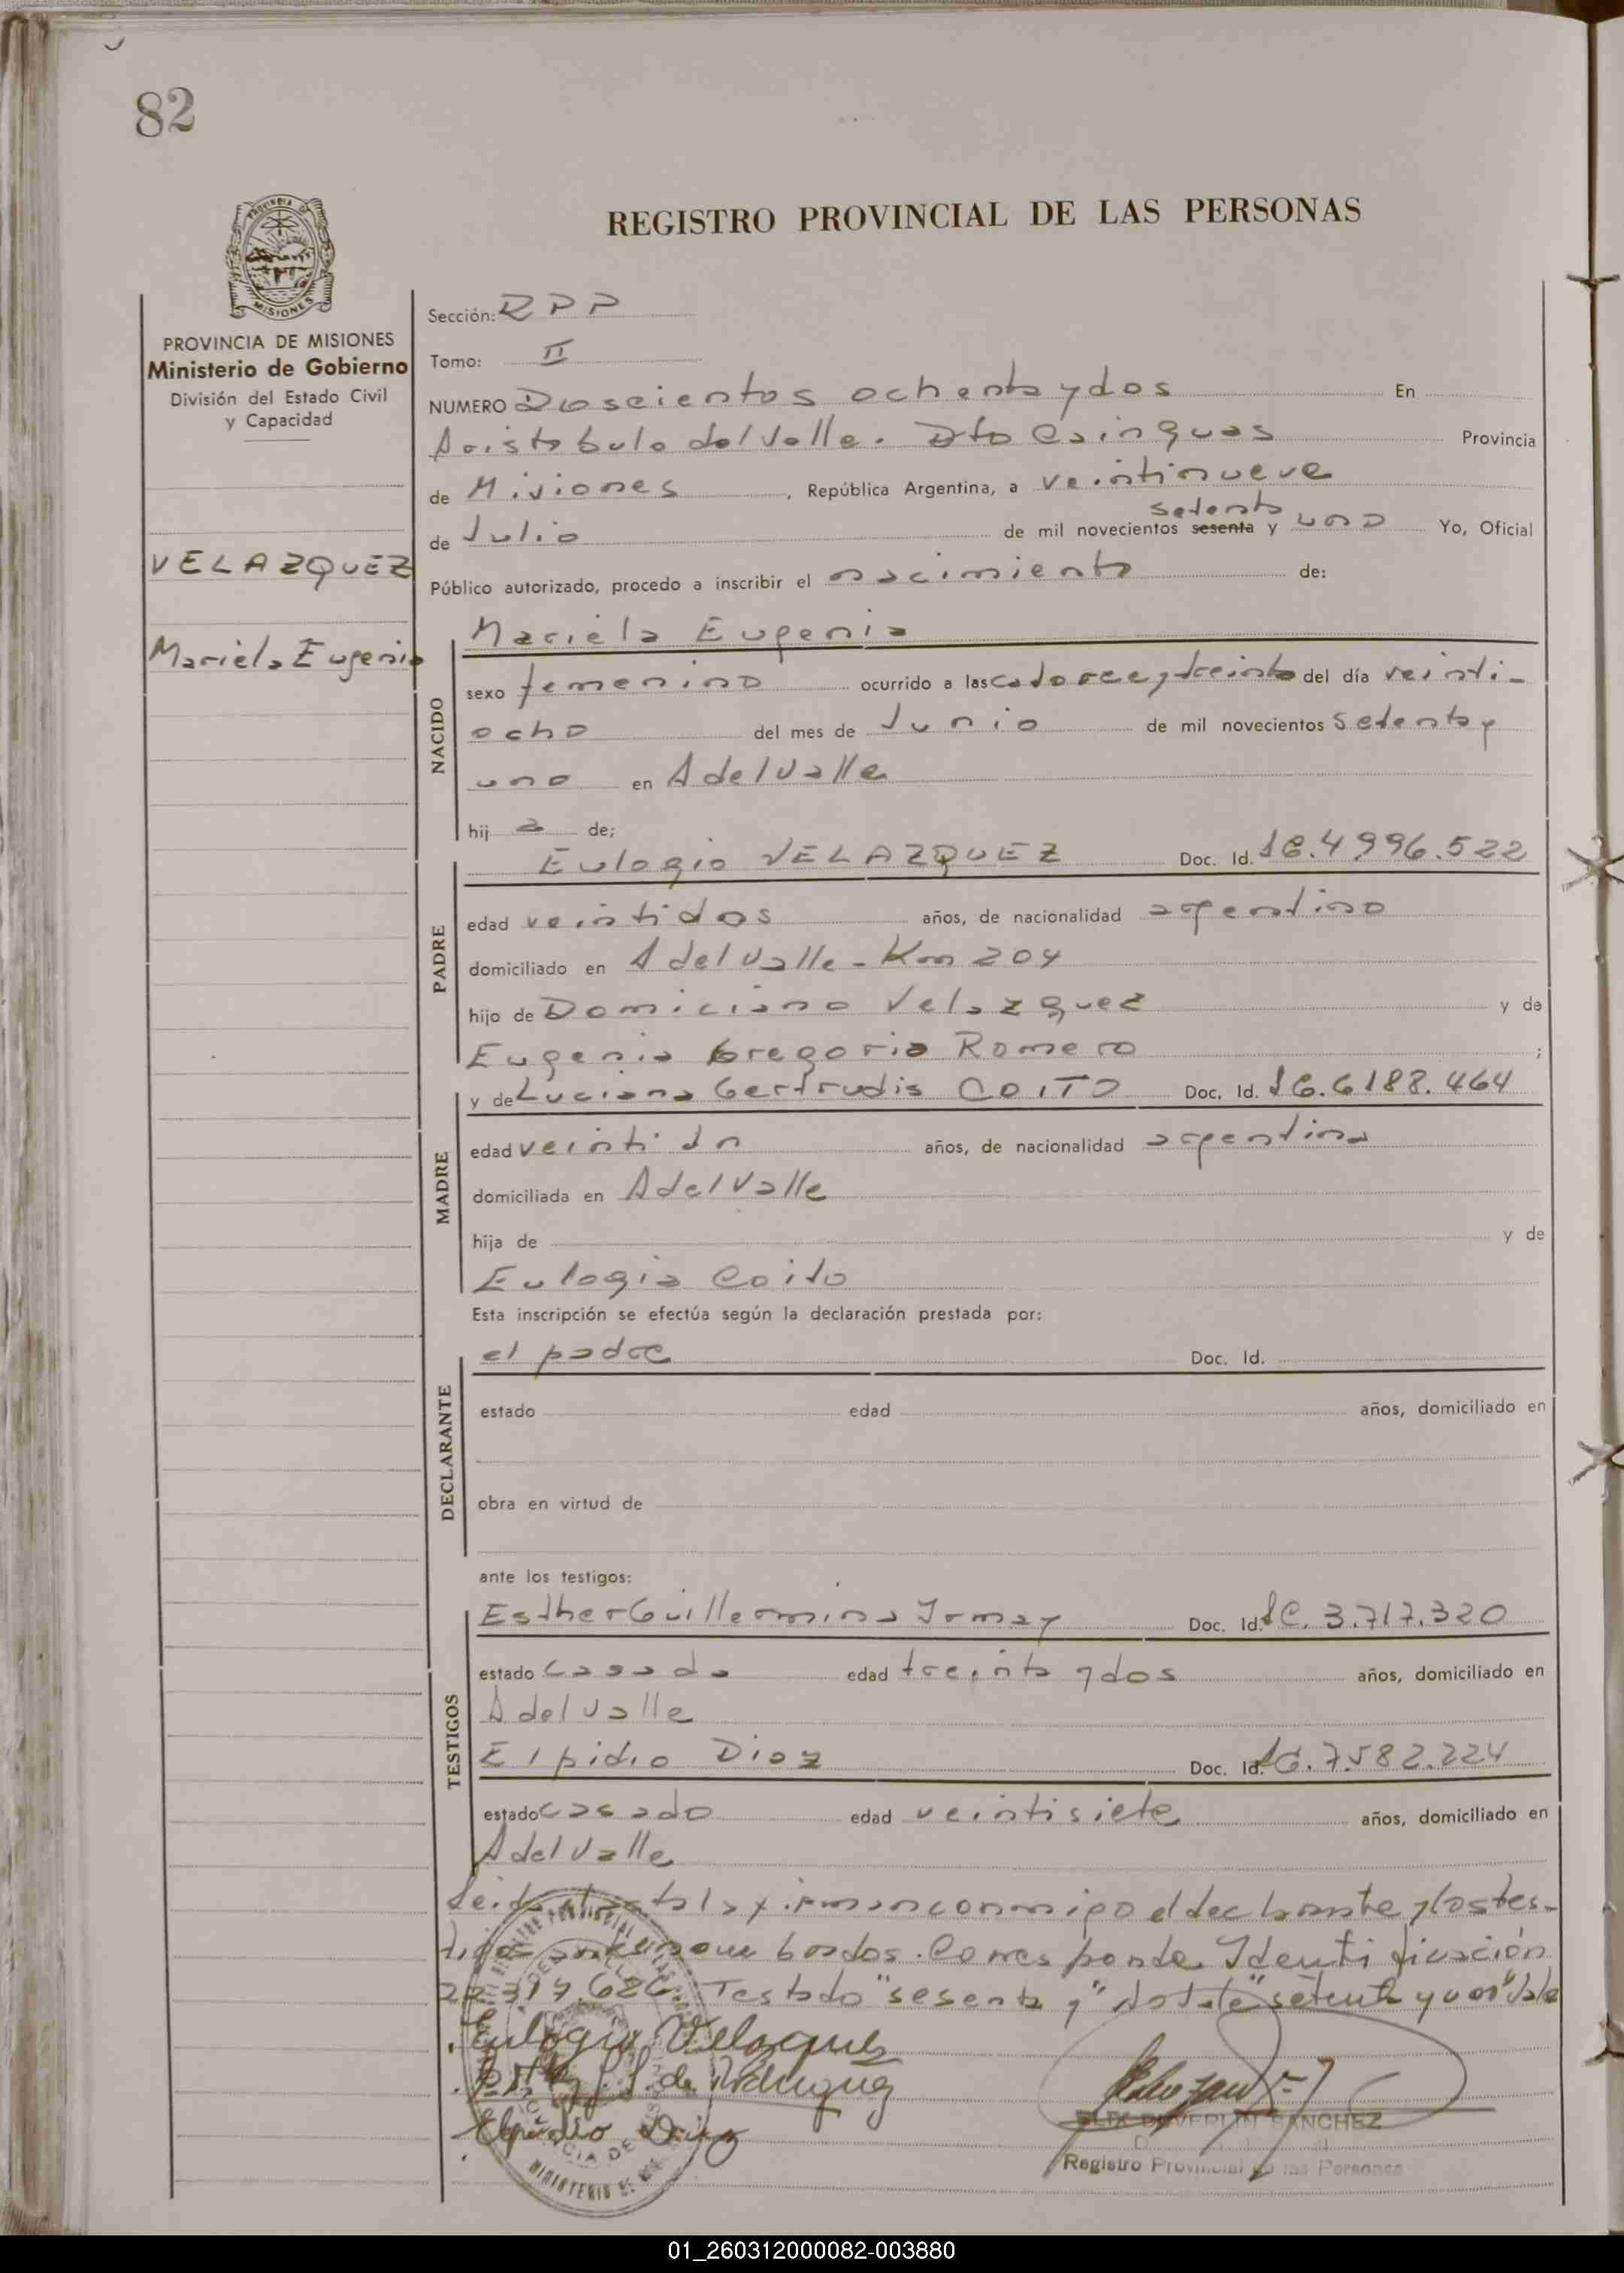 82
REGISTRO PROVINCIAL DE LAS PERSONAS
MISIONES
PROVINCIA DE MISIONES
Ministerio de Gobierno
División del Estado Civil
y Capacidad
VELAZQUEZ
Mariela Eugenia
Sección: RPP
Tomo: II
NUMERO Doscientos ochenta y dos En
Aristobulo del Valle. Dto Cainguas Provincia
de Misiones, República Argentina, a veintinueve
setenta
de Julio de mil novecientos sesenta y uno Yo, Oficial
Público autorizado, procedo a inscribir el nacimiento de:
Mariela Eugenia
NACIDO
sexo femenino ocurrido a las catorce y treinta del día veinti-
ocho del mes de Junio de mil novecientos setenta y
uno en A del Valle
hij a de;
Eulogio VELAZQUEZ Doc. Id. 4996.522
PADRE
edad veintidos años, de nacionalidad argentino
domiciliado en A del Valle - Km 204
hijo de Domiciano Velazquez y de
Eugenia Gregoria Romero ;
y de Luciana Gertrudis COITO Doc. Id. 6188.464
MADRE
edad veinti años, de nacionalidad argentina
domiciliada en A del Valle
hija de y de
Eulogia Coito
Esta inscripción se efectúa según la declaración prestada por:
el padre Doc. Id.
DECLARANTE
estado edad años, domiciliado en
obra en virtud de
ante los testigos:
Esther Guillermina Doc. Id. LC. 3.717.320
TESTIGOS
estado casada edad treinta y dos años, domiciliado en
A del Valle
Elpidio Diaz Doc. Id. 7.582.224
estado casado edad veintisiete años, domiciliado en
A del Valle
Leida el acta la firman conmigo el declarante y los tes-
tigos bordos. Corresponde Identificación
Testado "sesenta y" "setenta y uno" Vale
Eulogio Velazquez
de Rodriguez
Elpidio Diaz
SANCHEZ
Registro Provincial de las Personas
01_260312000082-003880